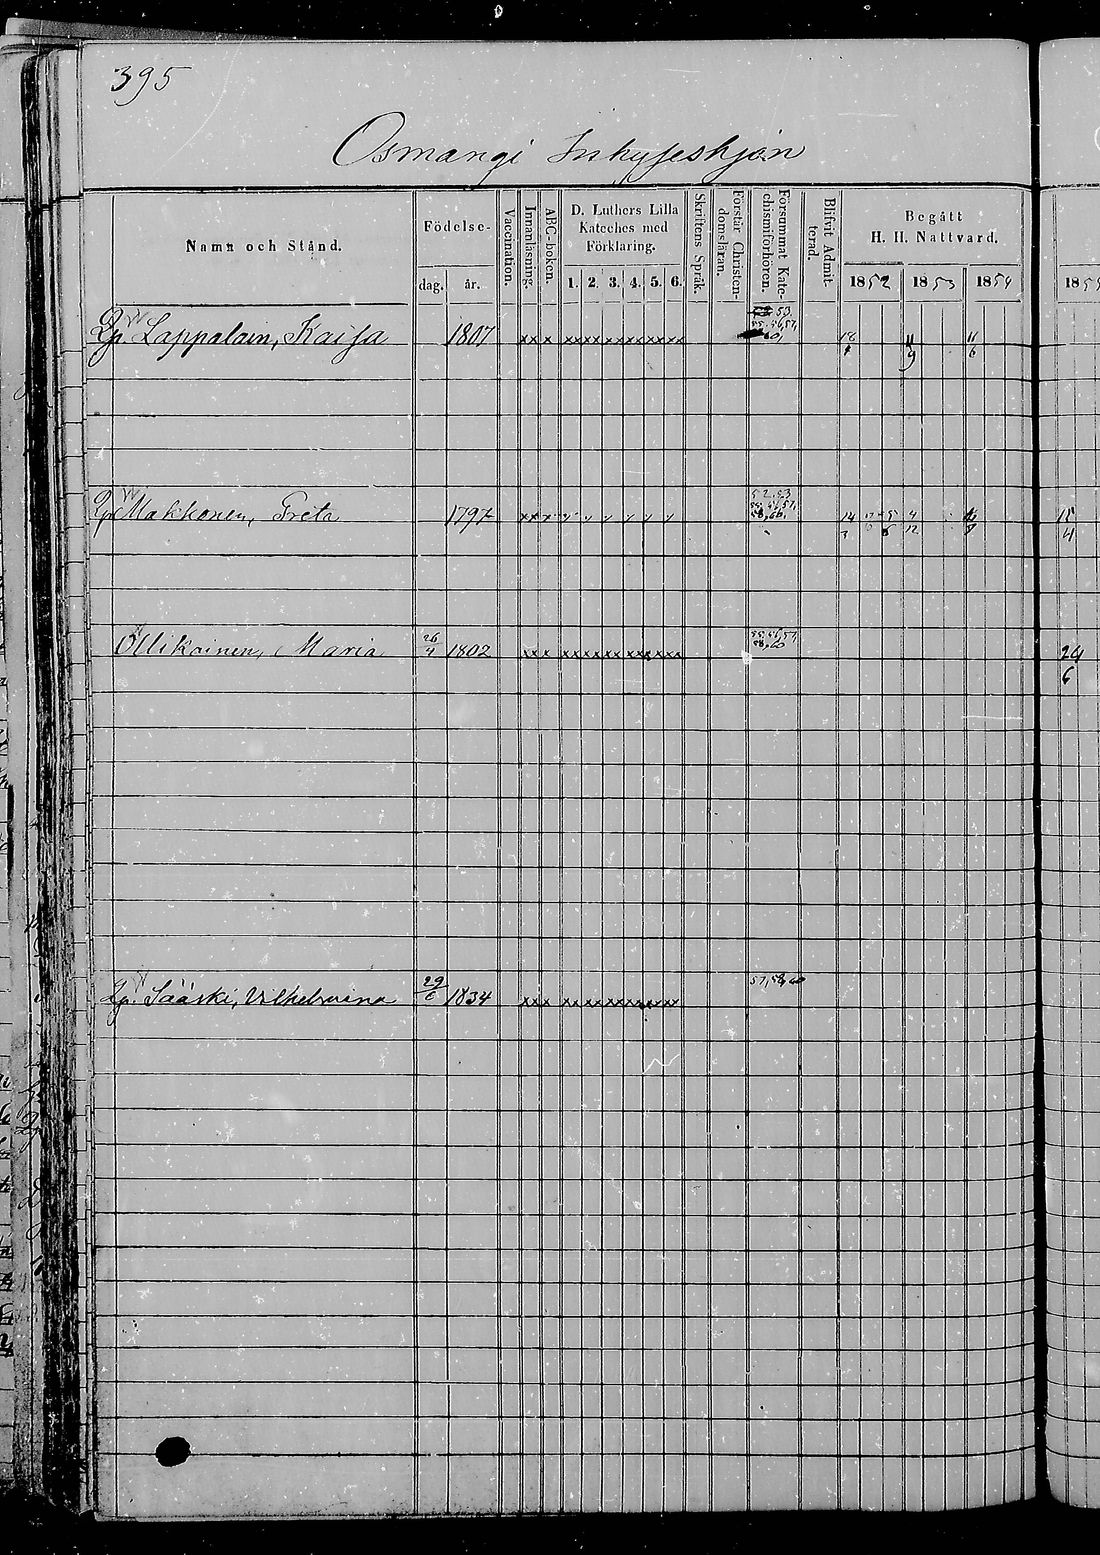 395
Osmangi Inhyseshjon
Namn och Stånd.
Födelse-
dag.
år.
Vaccination.
Innanläsning.
ABC-boken.
D. Luthers Lilla
Kateches med
Förklaring.
1. 2. 3. 4. 5. 6.
Skriftens Språk.
Förstår Christen-
domsläran.
Försummat Kate-
chismiförhören.
Blifvit Admit-
terad.
Begått
H. H. Nattvard.
1852 1853 1854
Lappalain, Kaisa 1807 xxx xxxxxxxxxxxx 18 11 9 11 6
Makkonen, Greta 1797 52, 53 14 4 12
Ollikainen, Maria 26 4 1802 xxx xxxxxxxxxxxx 55, 56, 57, 58, 60 24 6
Sääski, Vilhelmina 29 6 1834 xxx xxxxxxxxxxxx 57, 58, 60